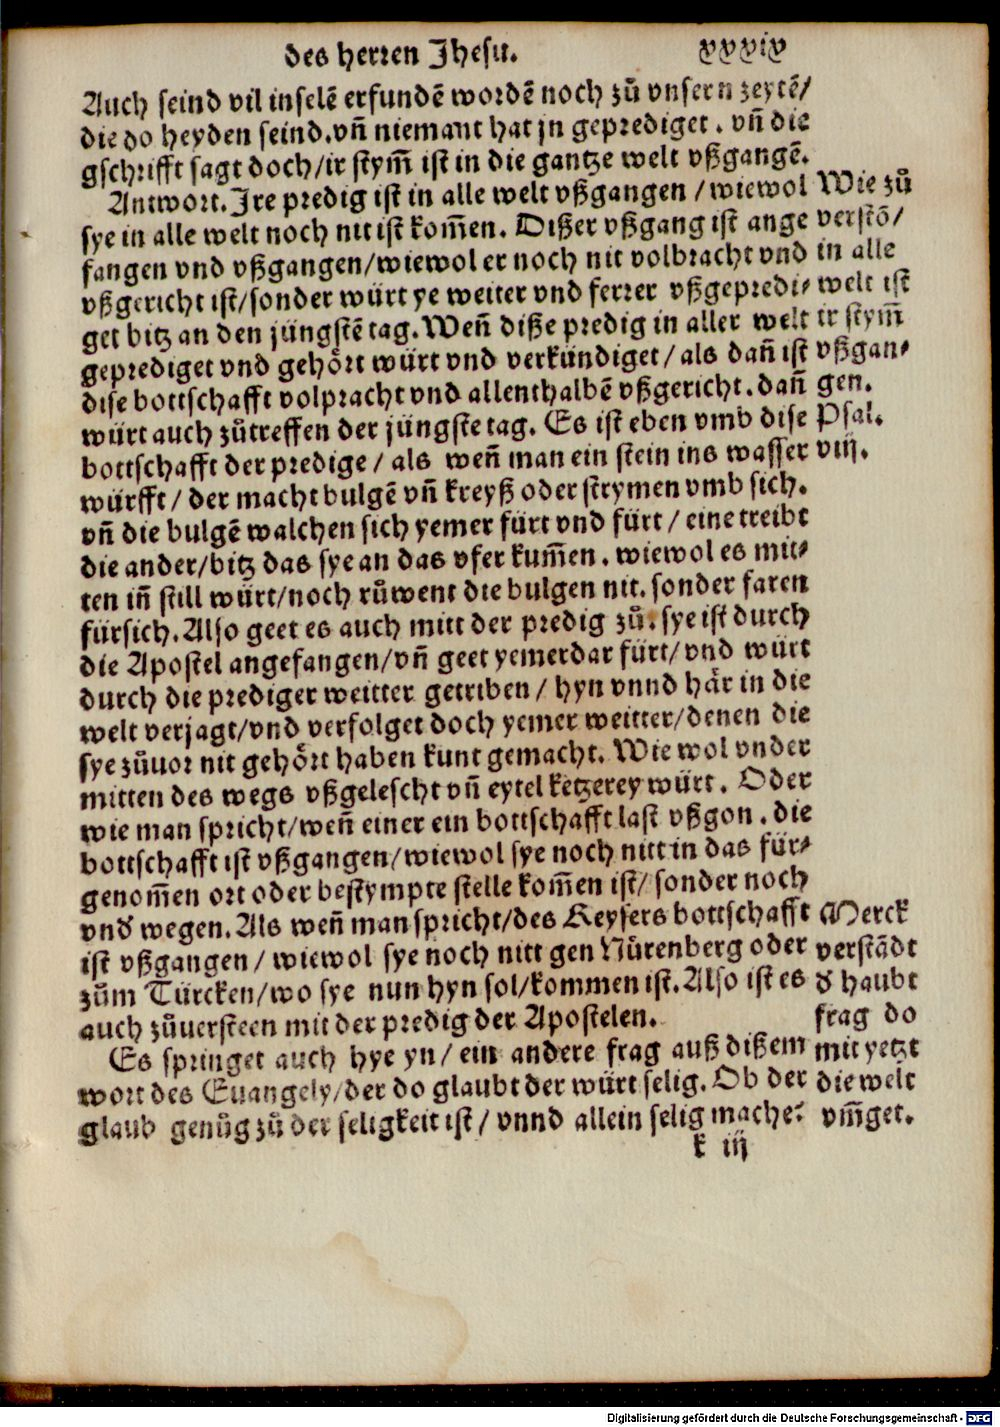 des herren Jhesu. xxxix
Auch seind vil inselē erfundē wordē noch zů vnsern zeytē/
die do heyden seind. vñ niemant hat jn geprediget. vñ die
gschrifft sagt doch/ir stym̃ ist in die gantze welt vßgangē.
Antwort. Ire predig ist in alle welt vßgangen / wiewol
sye in alle welt noch nit ist kom̃en. Dißer vßgang ist ange
fangen vnd vßgangen/wiewol er noch nit volbracht vnd
vßgericht ist/sonder würt ye weiter vnd ferrer vßgepredi⸗
get bitz an den jüngstē tag. Weñ diße predig in aller welt
geprediget vnd gehôrt würt vnd verkündiget/ als dañ ist
dise bottschafft volpracht vnd allenthalbē vßgericht. dañ
würt auch zůtreffen der jüngste tag. Es ist eben vmb dise
bottschafft der predige / als weñ man ein stein ins wasser
würfft / der macht bulgē vñ kreyß oder strymen vmb sich.
vñ die bulgē walchen sich yemer fürt vnd fürt / eine treibt
die ander/bitz das sye an das vfer kum̃en. wiewol es mit⸗
ten iñ still würt/noch růwent die bulgen nit. sonder faren
fürsich. Also geet es auch mitt der predig zů. sye ist durch
die Apostel angefangen/vñ geet yemerdar fürt/ vnd würt
durch die prediger weitter getriben / hyn vnnd hår in die
welt verjagt/vnd verfolget doch yemer weitter/denen die
sye zůuor nit gehôrt haben kunt gemacht. Wie wol vnder
mitten des wegs vßgelescht vñ eytel ketzerey würt. Oder
wie man spricht/weñ einer ein bottschafft last vßgon. die
bottschafft ist vßgangen/wiewol sye noch nitt in das für⸗
genom̃en ort oder bestympte stelle kom̃en ist/ sonder noch
vnď wegen. Als weñ man spricht/des Keysers bottschafft
ist vßgangen / wiewol sye noch nitt gen Nürenberg oder
zům Türcken/wo sye nun hyn sol/kommen ist. Also ist es
auch zůuersteen mit der predig der Apostelen.
Es springet auch hye yn/ ein andere frag auß dißem
wort des Euangely/der do glaubt der würt selig. Ob der
glaub genůg zů der seligkeit ist / vnnd allein selig mache?
k iij
Wie zů
verstō/
in alle
welt ist
ir stym̃
vßgan⸗
gen.
Psal.
viij.
Merck
verstādt
ď haubt
frag do
mit yetzt
die welt
vm̃get.
Digitalisierung gefördert durch die Deutsche Forschungsgemeinschaft - DFG